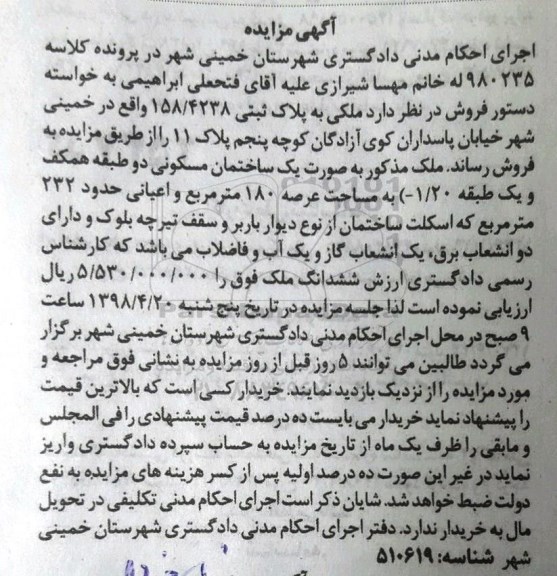 آگهی مزایده
اجرای احکام مدنی دادگستری شهرستان خمینی شهر در پرونده کلاسه
۹۸۰۲۳۵ له خانم مهسا شیرازی علیه آقای فتحعلی ابراهیمی به خواسته
دستور فروش در نظر دارد ملکی به پلاک ثبتی ۱۵۸/۴۲۳۸ واقع در خمینی
شهر خیابان پاسداران کوی آزادگان کوچه پنجم پلاک ۱۱ را از طریق مزایده به
فروش رساند. ملک مذکور به صورت یک ساختمان مسکونی دو طبقه همکف
و یک طبقه ۱/۲۰-) به مساحت عرصه ۱۸۰ مترمربع و اعیانی حدود ۲۳۲
مترمربع که اسکلت ساختمان از نوع دیوار باربر و سقف تیرچه بلوک و دارای
دو انشعاب برق، یک انشعاب گاز و یک آب و فاضلاب می باشد که کارشناس
رسمی دادگستری ارزش ششدانگ ملک فوق را ۵/۵۳۰/۰۰۰/۰۰۰ ریال
ارزیابی نموده است لذا جلسه مزایده در تاریخ پنج شنبه ۱۳۹۸/۴/۲۰ ساعت
۹ صبح در محل اجرای احکام مدنی دادگستری شهرستان خمینی شهر برگزار
می گردد طالبین می توانند ۵ روز قبل از روز مزایده به نشانی فوق مراجعه و
مورد مزایده را از نزدیک بازدید نمایند. خریدار کسی است که بالاترین قیمت
را پیشنهاد نماید خریدار می بایست ده درصد قیمت پیشنهادی را فی المجلس
و مابقی را ظرف یک ماه از تاریخ مزایده به حساب سپرده دادگستری واریز
نماید در غیر این صورت ده درصد اولیه پس از کسر هزینه های مزایده به نفع
دولت ضبط خواهد شد. شایان ذکر است اجرای احکام مدنی تکلیفی در تحویل
مال به خریدار ندارد. دفتر اجرای احکام مدنی دادگستری شهرستان خمینی
شهر شناسه: ۵۱۰۶۱۹